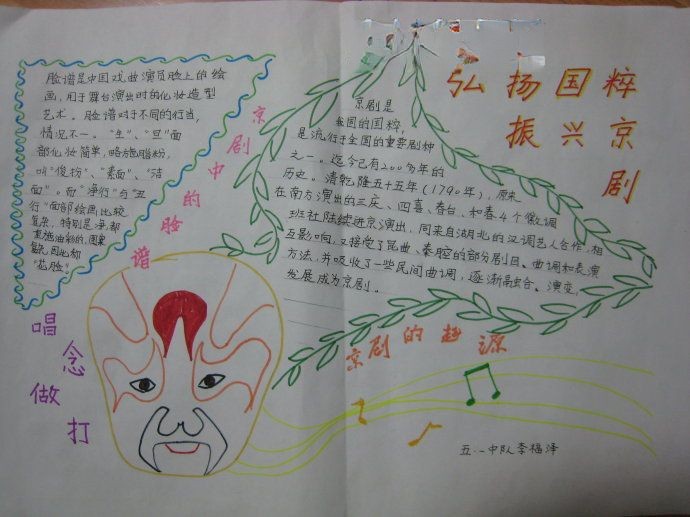 弘扬国粹
振兴京剧
脸谱是中国戏曲演员脸上的绘
画,用于舞台演出时的化妆造型
艺术。脸谱对于不同的行当,
情况不一。"生"、"旦"面
部化妆简单,略施脂粉,
叫"俊扮"、"素面"、"洁
面"。而"净行"与"丑
行"面部绘画比较
复杂,特别是净,都
重施油彩的,图案
复杂,因此称
"花脸"。
京剧中的脸谱
京剧是
我国的国粹,
是流行于全国的重要剧种
之一。迄今已有200多年的
历史。清乾隆五十五年(1790年),原来
在南方演出的三庆、四喜、春台、和春4个徽调
班社陆续进京演出,同来自湖北的汉调艺人合作,相
互影响,又接受了昆曲、秦腔的部分剧目、曲调和表演
方法,并吸收了一些民间曲调,逐渐融合、演变,
发展成为京剧。
京剧的起源
唱念做打
五.一中队李福泽